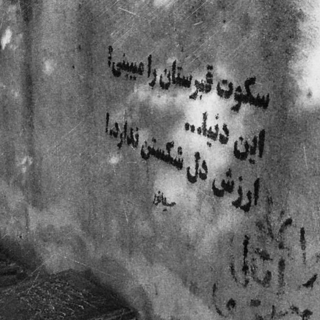 سکوت قبرستان را میبینی؟
این دنیا...
ارزش دل شکستن ندارد!